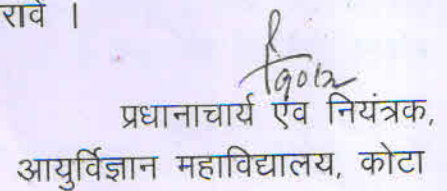 रावें ।
प्रधानाचार्य एंव नियंत्रक,
आयुर्विज्ञान महाविद्यालय, कोटा